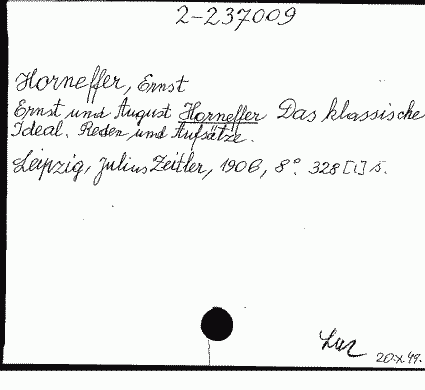 2-237009
Horneffer, Ernst
Ernst und August Horneffer Das klassische
Ideal. Reden und Aufsätze.
Leipzig, Julius Zeitler, 1906, 8°. 328 [1] S.
20.X.49.